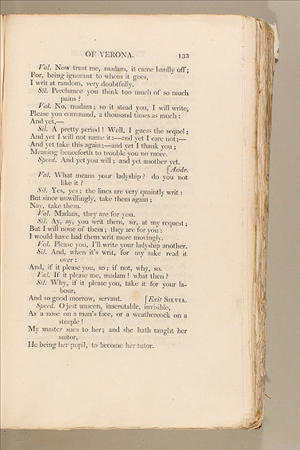 OF VERONA. 133
Val. Now trust me, madam, it came hardly off;
For, being ignorant to whom it goes,
I writ at random, very doubtfully.
Sil. Perchance you think too much of so much
pains?
Val. No, madam; so it stead you, I will write,
Please you command, a thousand times as much:
And yet,—
Sil. A pretty period! Well, I guess the sequel;
And yet I will not name it:—and yet I care not:—
And yet take this again;—and yet I thank you;
Meaning henceforth to trouble you no more.
Speed. And yet you will; and yet another yet.
[Aside.
Val. What means your ladyship? do you not
like it?
Sil. Yes, yes; the lines are very quaintly writ:
But since unwillingly, take them again;
Nay, take them.
Val. Madam, they are for you.
Sil. Ay, ay, you writ them, sir, at my request;
But I will none of them; they are for you:
I would have had them writ more movingly.
Val. Please you, I'll write your ladyship another.
Sil. And, when it's writ, for my sake read it
over:
And, if it please you, so; if not, why, so.
Val. If it please me, madam! what then?
Sil. Why, if it please you, take it for your la-
bour,
And so good morrow, servant. [Exit SILVIA.
Speed. O jest unseen, inscrutable, invisible,
As a nose on a man's face, or a weathercock on a
steeple!
My master sues to her; and she hath taught her
suitor,
He being her pupil, to become her tutor.